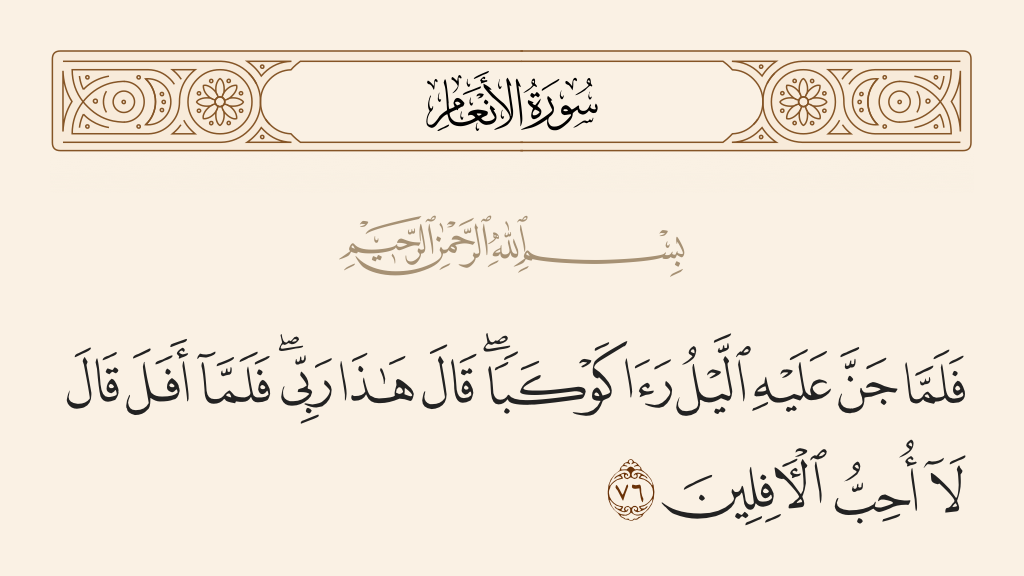 سُورَةُ الأَنْعَامِ
بِسْمِ ٱللَّهِ ٱلرَّحْمَٰنِ ٱلرَّحِيمِ
فَلَمَّا جَنَّ عَلَيْهِ ٱلَّيْلُ رَءَا كَوْكَبًۭا ۖ قَالَ هَـٰذَا رَبِّى ۖ فَلَمَّآ أَفَلَ قَالَ
لَآ أُحِبُّ ٱلْـَٔافِلِينَ ٧٦